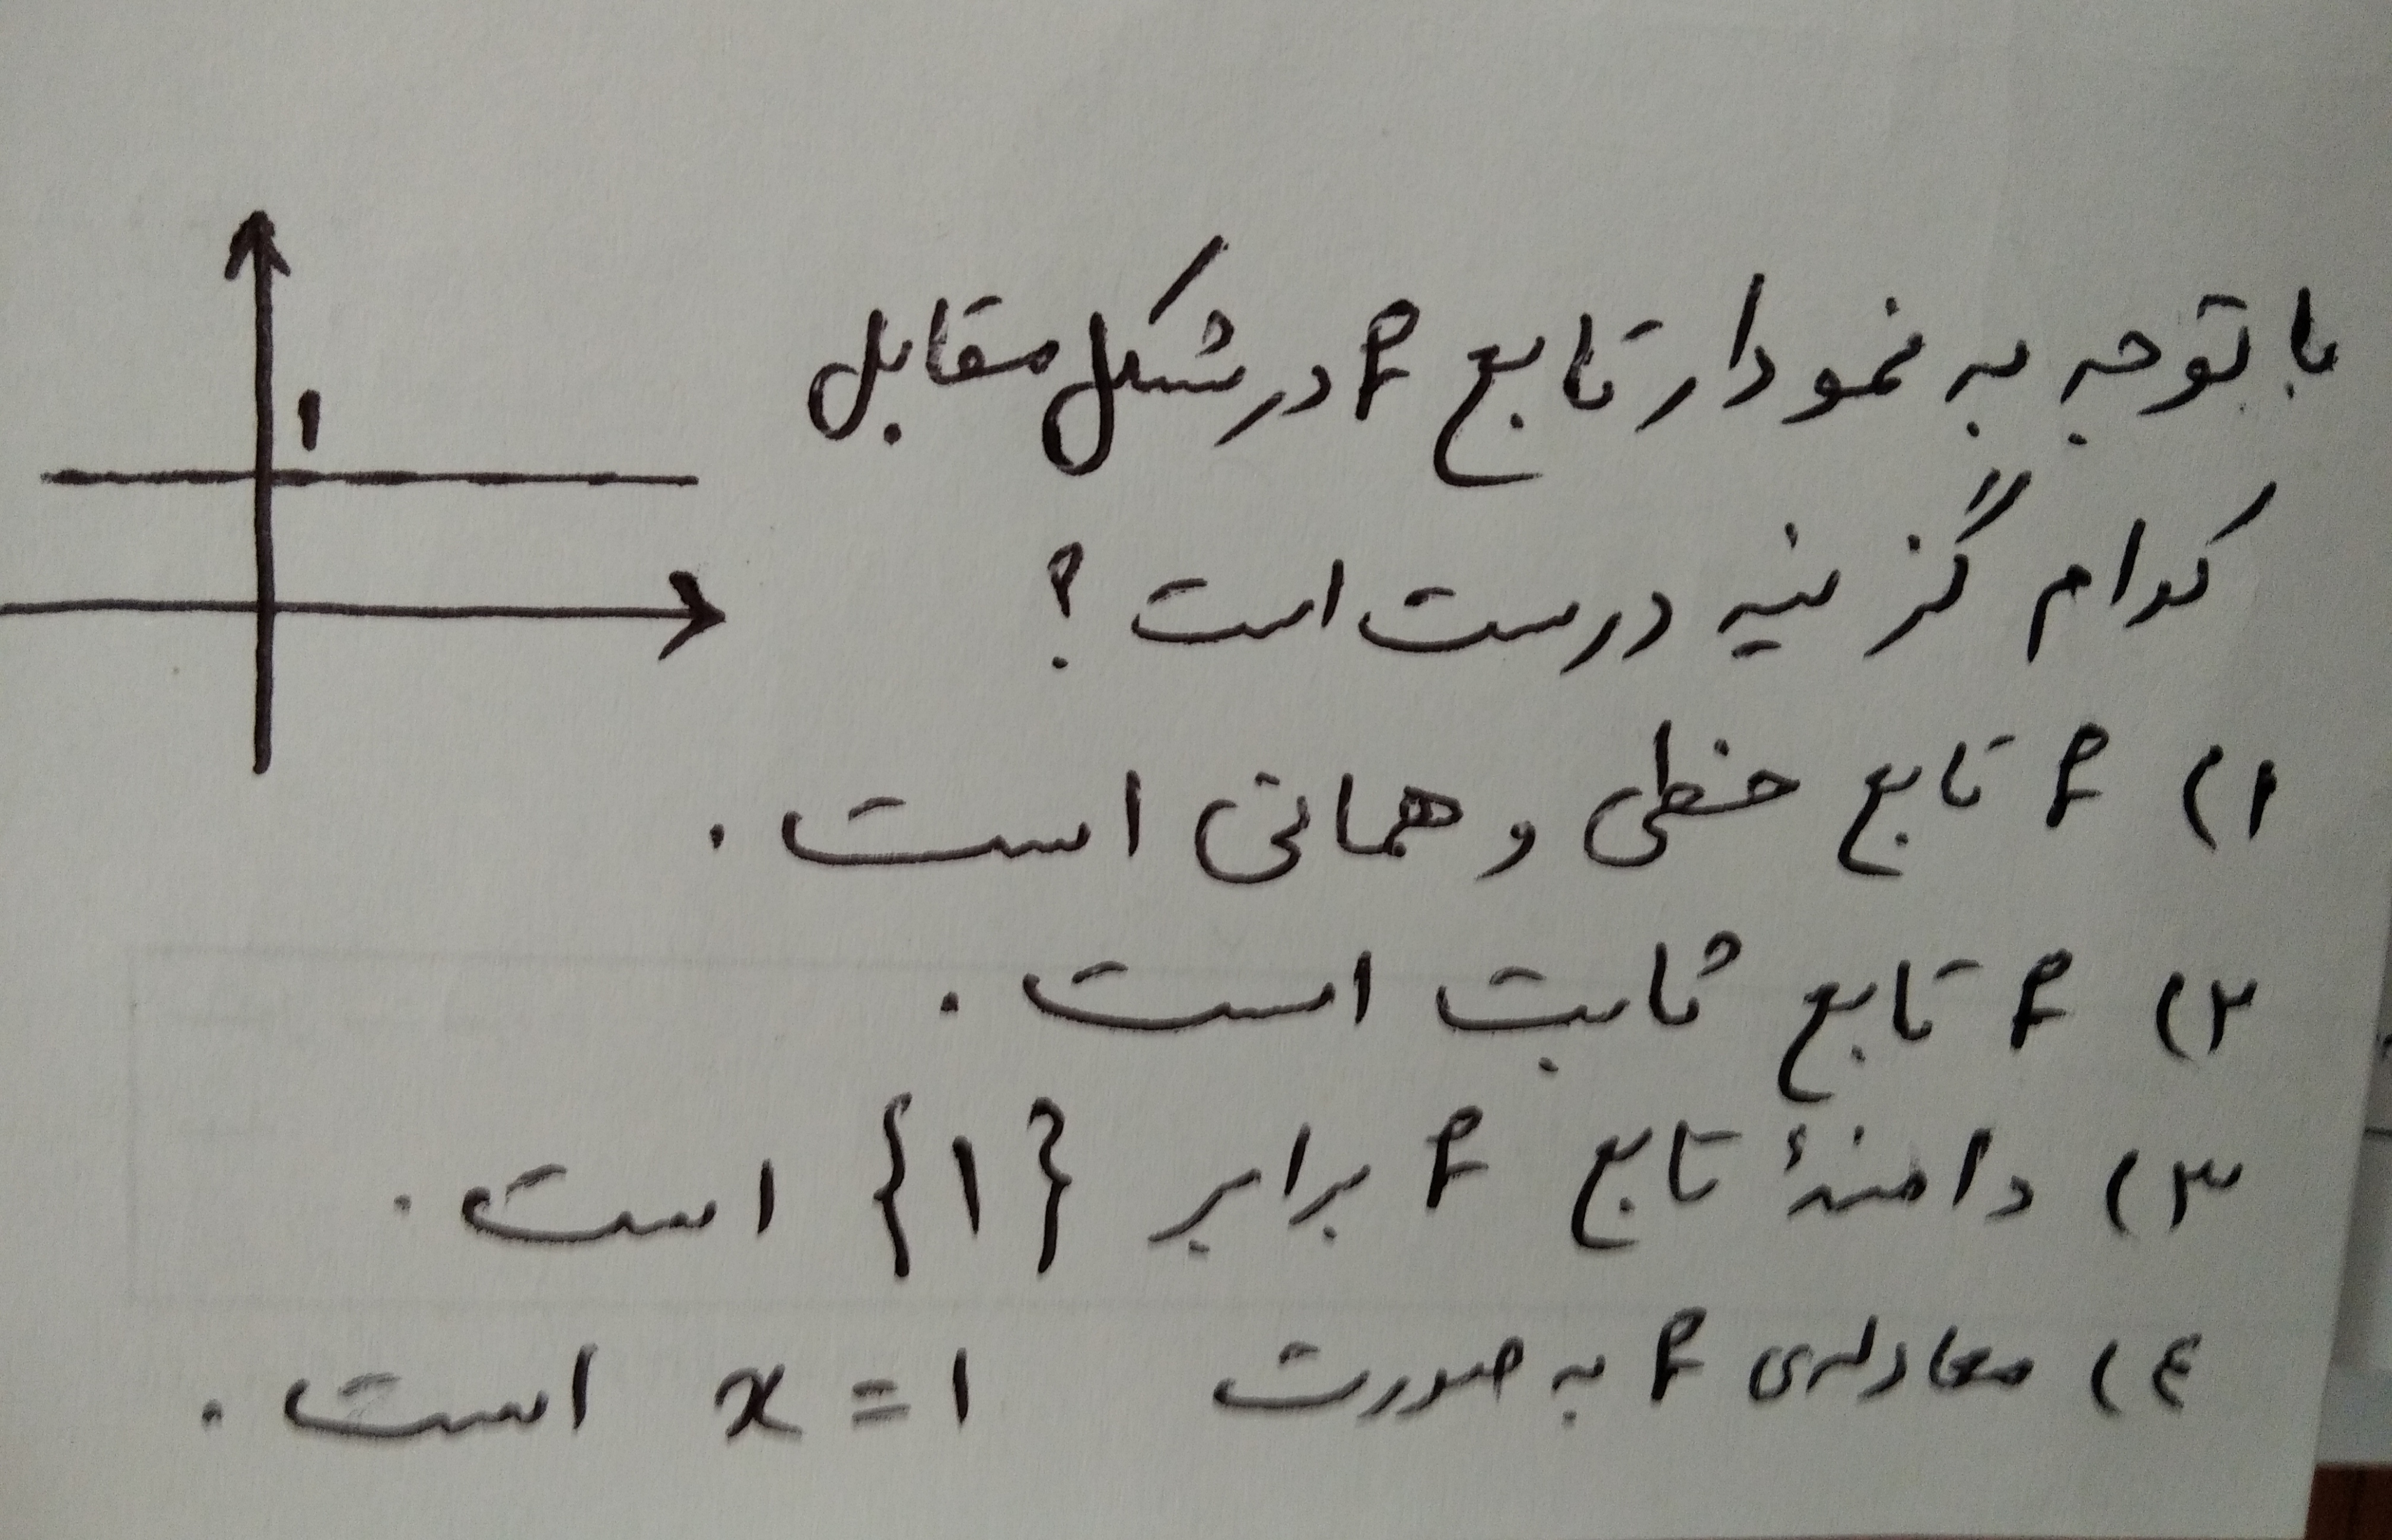 با توجه به نمودار تابع f در شکل مقابل
۱
کدام گزینه درست است ؟
۱) f تابع خطی و همانی است .
۲) f تابع ثابت است .
۳) دامنهٔ تابع f برابر {۱} است .
٤) معادله‌ی f به صورت x = ۱ است .